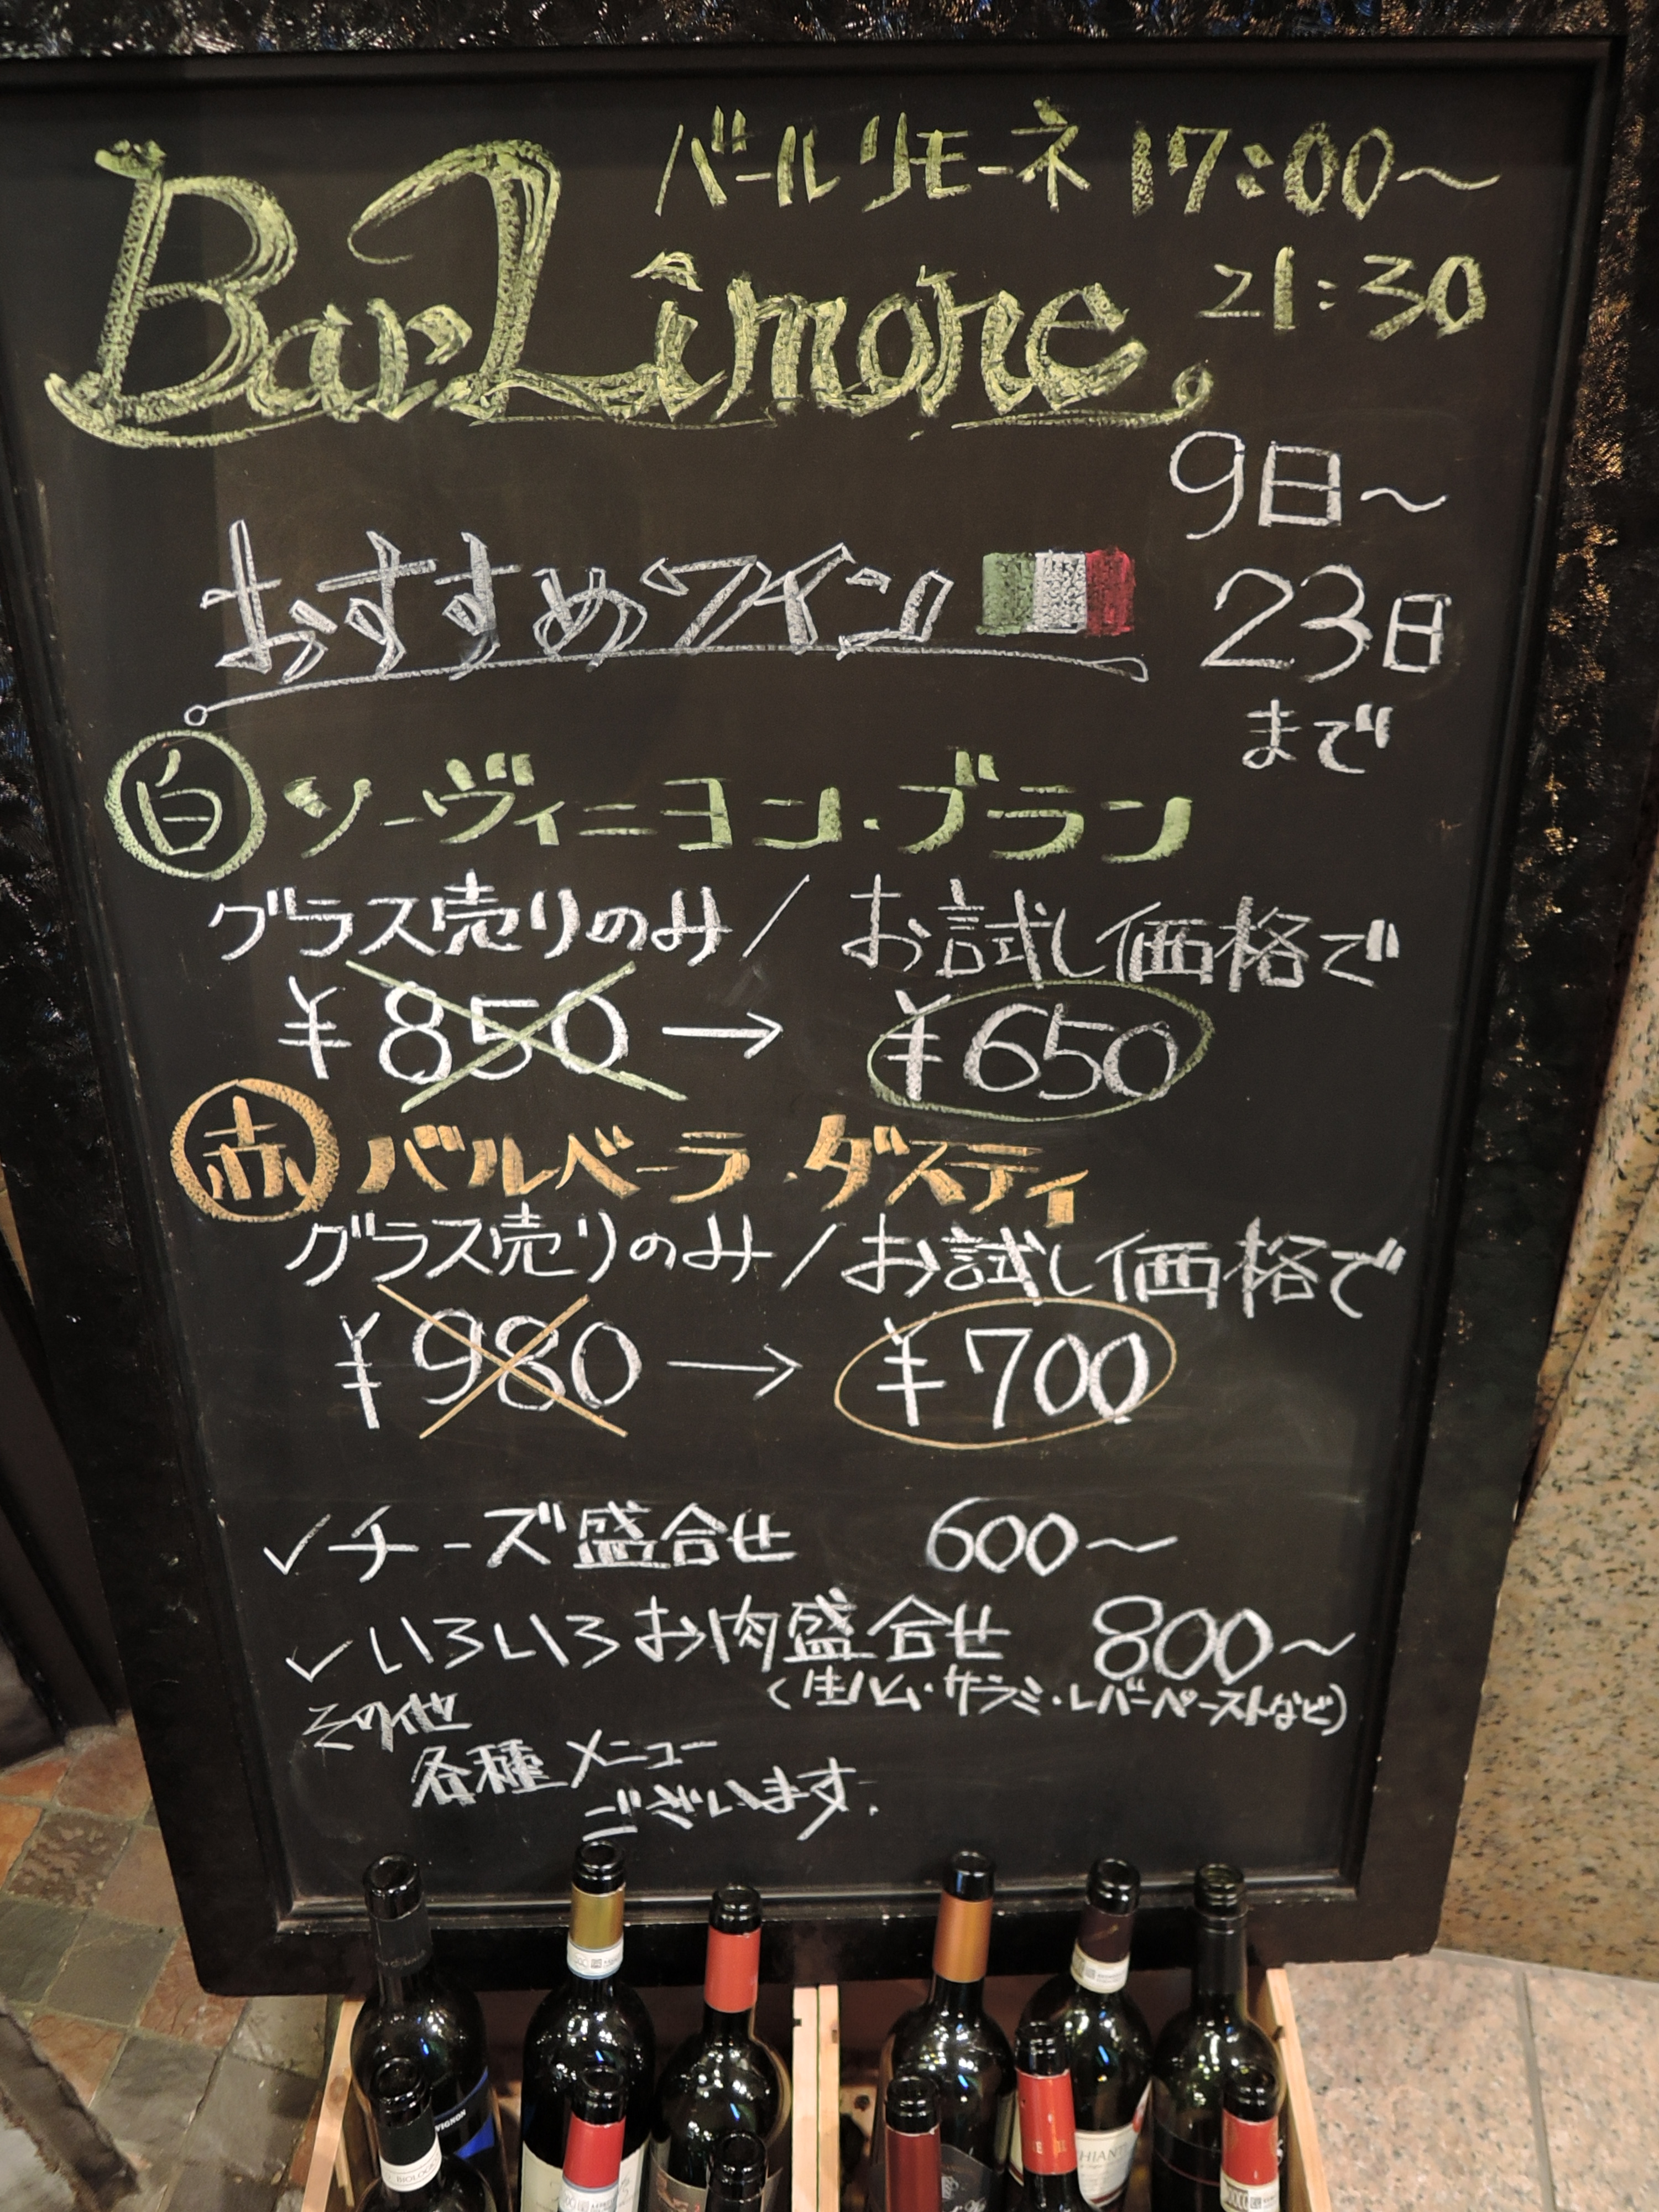 バール リモーネ 17:00〜
21:30
Bar Limone.
9日〜
23日
まで
おすすめワイン
白 ソーヴィニヨン・ブラン
グラス売りのみ / お試し価格で
¥850 → ¥650
赤 バルベーラ・ダスティ
グラス売りのみ / お試し価格で
¥980 → ¥700
✓チーズ盛合せ 600〜
✓いろいろお肉盛合せ 800〜
(生ハム・サラミ・レバーペーストなど)
その他
各種メニュー
ございます.
VIGNON
BIOLOGIC
HIANTI